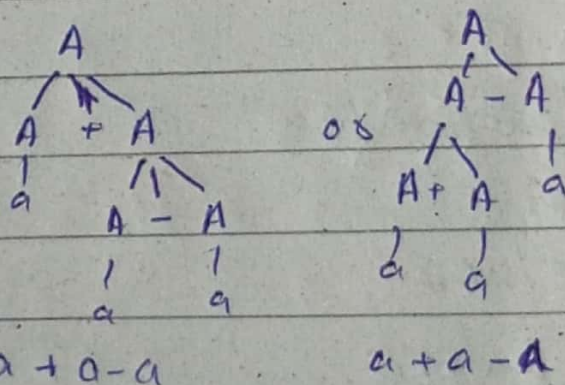 A A
A + A or A - A
a A - A A + A a
a a a a
a + a - a a + a - A